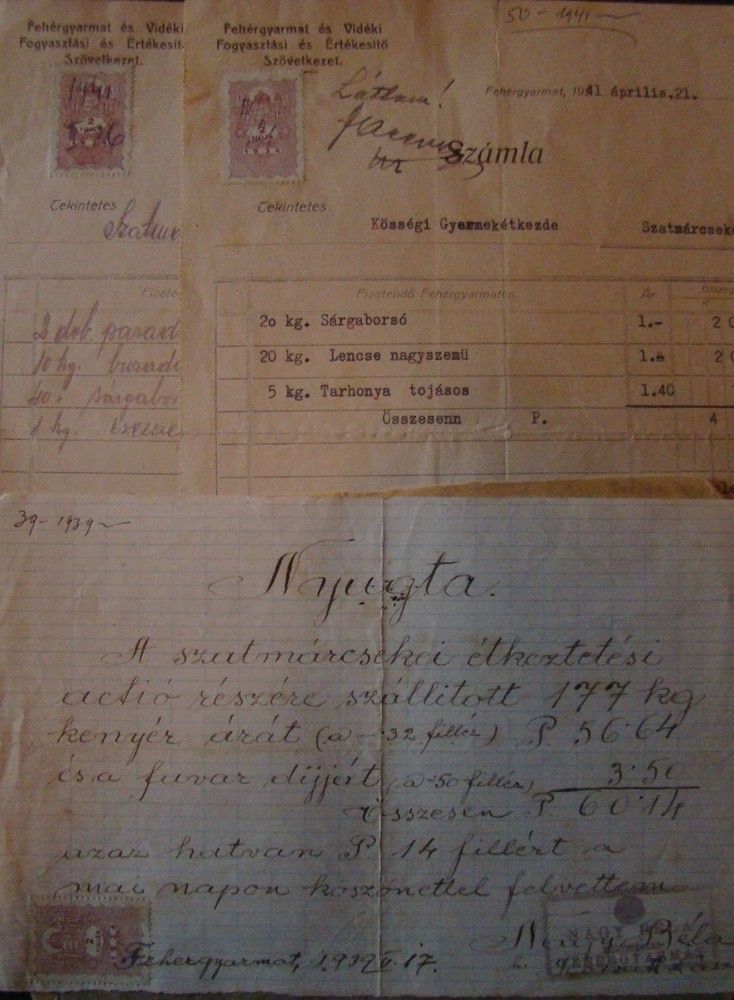 Fehérgyarmat és Vidéki
Fogyasztási és Értékesítő
Szövetkezet.
1941
2
Cekintetes
Szatm
Fizete
2 dob. parad
10 kg. buzadá
40 " sárgabor
1 kg.
Fehérgyarmat és Vidéki
Fogyasztási és Értékesitő
Szövetkezet.
50 - 1941
Láttam!
Fehérgyarmat, 1941 április.21.
Számla
Cekintetes
Kösségi Gyermekétkezde
Szatmárcsek
Fizetendő Fehérgyarmaton.
Ár
20 kg. Sárgaborsó 1.- 20
20 kg. Lencse nagyszemü 20
5 kg. Tarhonya tojásos 1.40
Összesenn P. 4
39-1939
Nyugta.
A szatmárcsekei étkeztetési
actió részére szállitott 177 kg
kenyér árát (a -32 fillér) P. 56.64
és a fuvar dijjért (a -50 fillér) 3.50
összesen P. 60.14
azaz hatvan P. 14 fillért a
mai napon köszönettel felvettem
Fehérgyarmat, 1939 V. 17.
Nagy Béla
NAGY BÉLA
FEHÉRGYARMAT